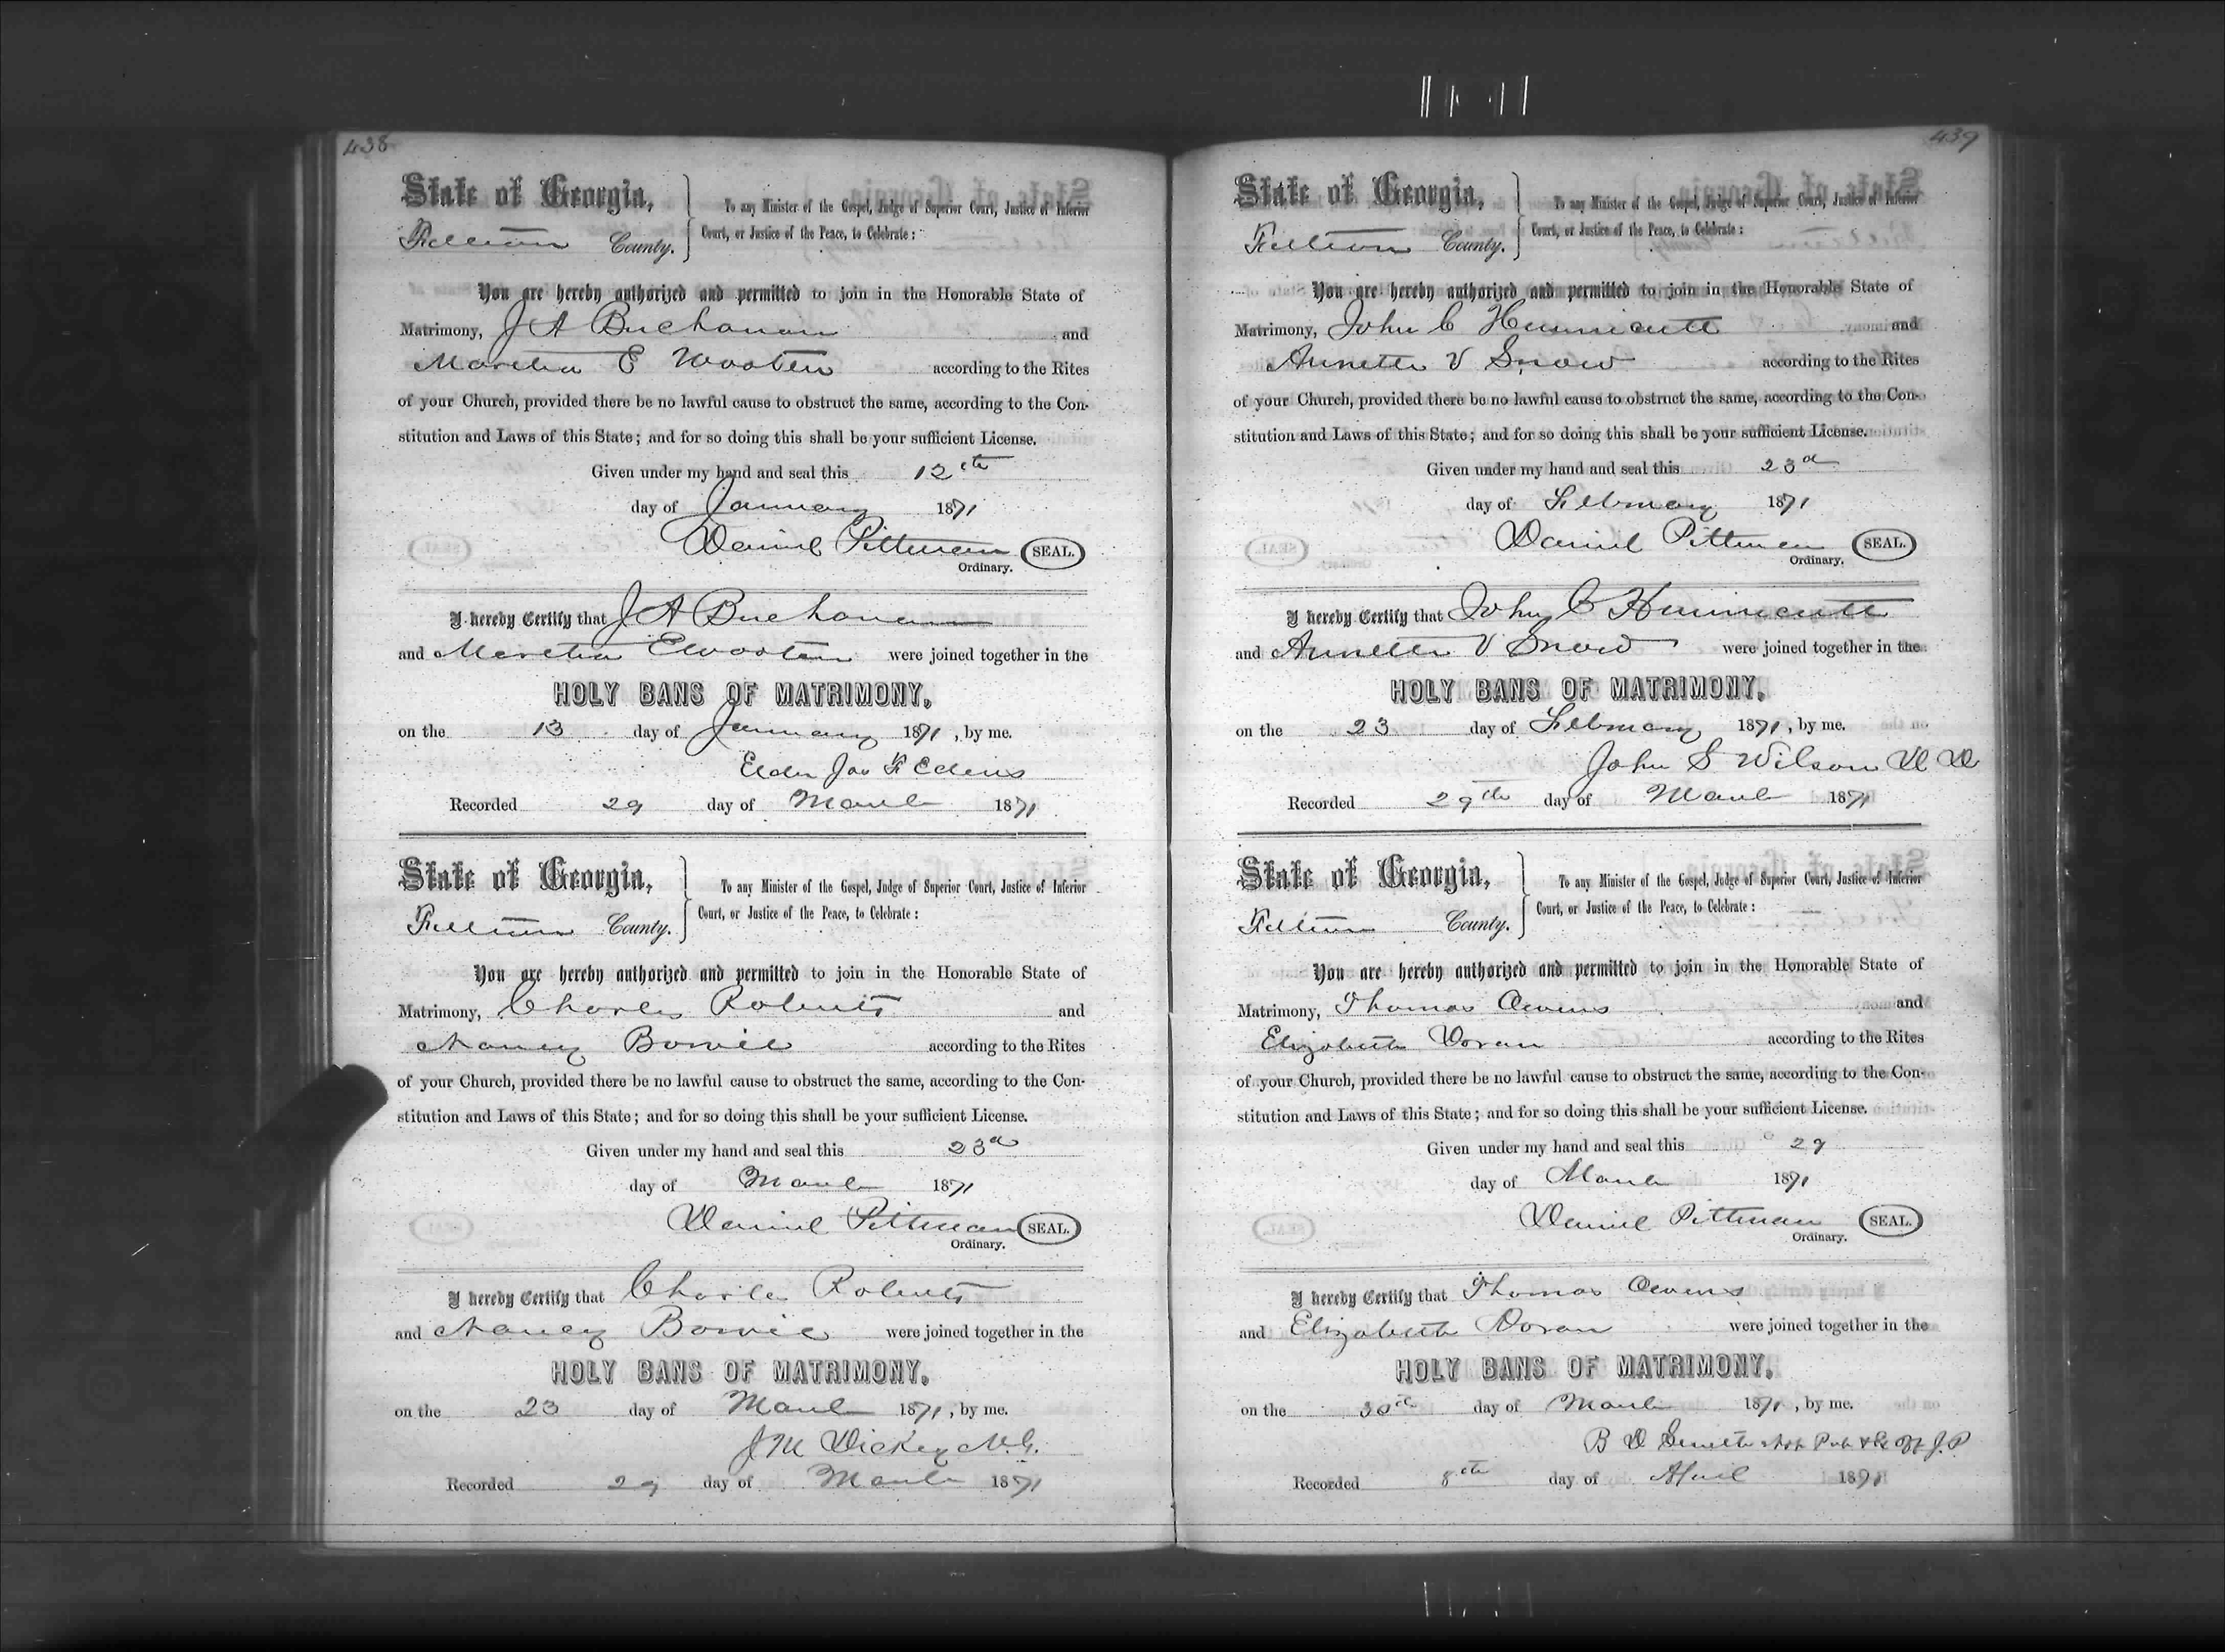 438
State of Georgia,
Fulton County.
To any Minister of the Gospel, Judge of Superior Court, Justice of Inferior
Court, or Justice of the Peace, to Celebrate :
You are hereby authorized and permitted to join in the Honorable State of
Matrimony, J A Buchanan and
Martha E Wooten according to the Rites
of your Church, provided there be no lawful cause to obstruct the same, according to the Con-
stitution and Laws of this State; and for so doing this shall be your sufficient License.
Given under my hand and seal this 12th
day of January 1871
Daniel Pittman SEAL.
Ordinary.
I hereby Certify that J A Buchanan
and Martha E Wooten were joined together in the
HOLY BANS OF MATRIMONY,
on the 13 day of January 1871, by me.
Elder Jas F Edens
Recorded 29 day of March 1871
State of Georgia,
Fulton County.
To any Minister of the Gospel, Judge of Superior Court, Justice of Inferior
Court, or Justice of the Peace, to Celebrate :
You are hereby authorized and permitted to join in the Honorable State of
Matrimony, Charles Roberts and
Nancy Bowie according to the Rites
of your Church, provided there be no lawful cause to obstruct the same, according to the Con-
stitution and Laws of this State; and for so doing this shall be your sufficient License.
Given under my hand and seal this 23d
day of March 1871
Daniel Pittman SEAL.
Ordinary.
I hereby Certify that Charles Roberts
and Nancy Bowie were joined together in the
HOLY BANS OF MATRIMONY,
on the 23 day of March 1871, by me.
J M Dickey M.G.
Recorded 29 day of March 1871
439
State of Georgia,
Fulton County.
To any Minister of the Gospel, Judge of Superior Court, Justice of Inferior
Court, or Justice of the Peace, to Celebrate :
You are hereby authorized and permitted to join in the Honorable State of
Matrimony, John C Hunnicutt and
Annette V Snow according to the Rites
of your Church, provided there be no lawful cause to obstruct the same, according to the Con-
stitution and Laws of this State; and for so doing this shall be your sufficient License.
Given under my hand and seal this 23d
day of February 1871
Daniel Pittman SEAL.
Ordinary.
I hereby Certify that John C Hunnicutt
and Annette V Snow were joined together in the
HOLY BANS OF MATRIMONY,
on the 23 day of February 1871, by me.
John S Wilson D D
Recorded 29th day of March 1871
State of Georgia,
Fulton County.
To any Minister of the Gospel, Judge of Superior Court, Justice of Inferior
Court, or Justice of the Peace, to Celebrate :
You are hereby authorized and permitted to join in the Honorable State of
Matrimony, Thomas Owens and
Elizabeth Doran according to the Rites
of your Church, provided there be no lawful cause to obstruct the same, according to the Con-
stitution and Laws of this State; and for so doing this shall be your sufficient License.
Given under my hand and seal this 29
day of March 1871
Daniel Pittman SEAL.
Ordinary.
I hereby Certify that Thomas Owens
and Elizabeth Doran were joined together in the
HOLY BANS OF MATRIMONY,
on the 30th day of March 1871, by me.
B D Smith Not Pub & Ex Off J.P
Recorded 8th day of April 1871